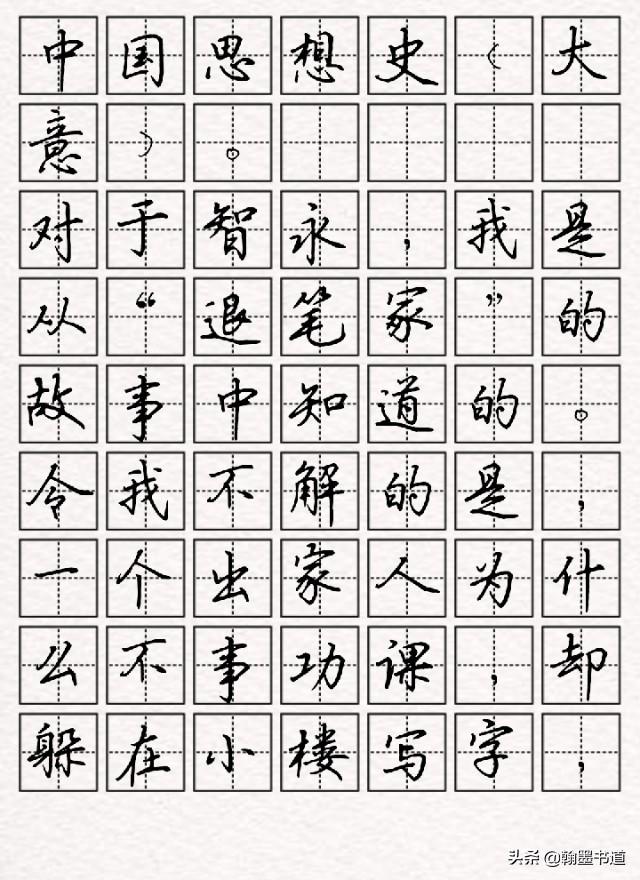 中国思想史（大
意）。
对于智永，我是
从“退笔家”的
故事中知道的。
令我不解的是，
一个出家人为什
么不事功课，却
躲在小楼写字，
头条 @翰墨书道